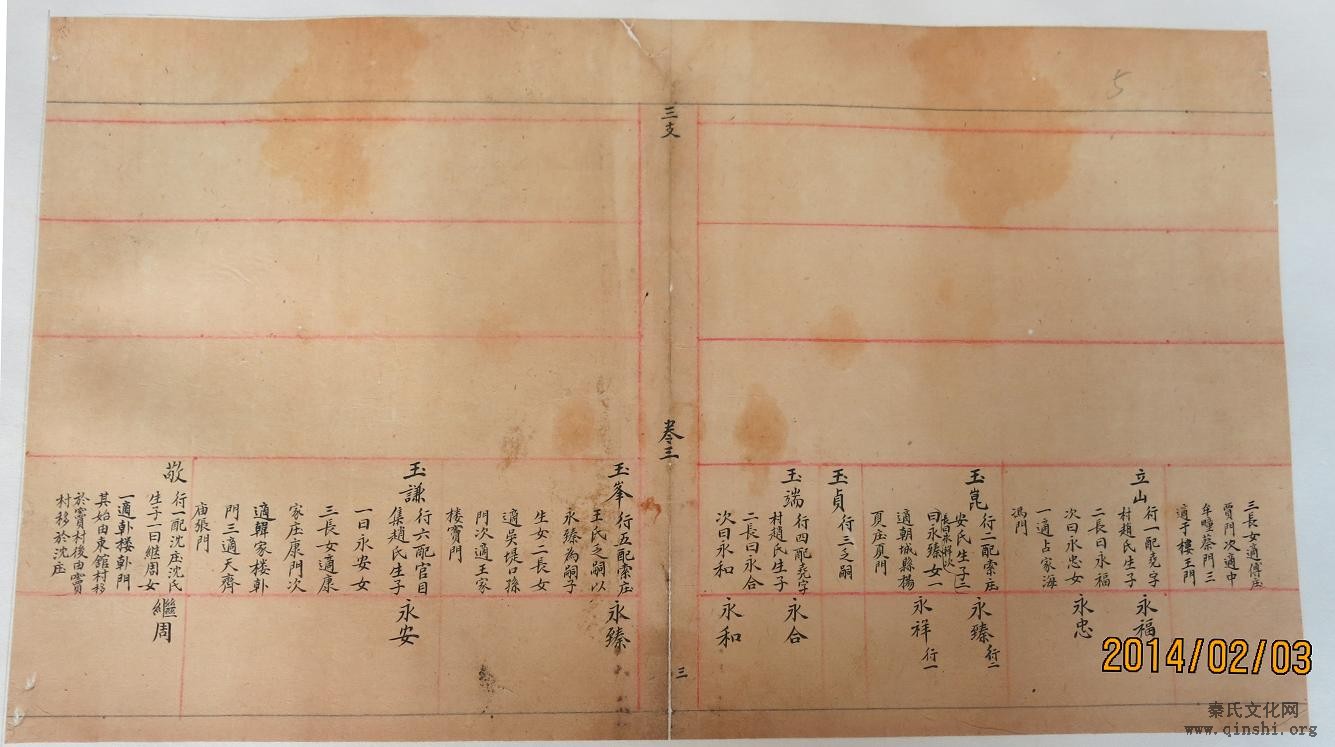 5
三長女適傅庄
賈門次適中
牟疃蔡門三
適于樓王門
立山
行一配堯字
村趙氏生子
二長曰永福
次曰永忠女
一適占家海
馮門
永福
永忠
玉崑
行二配索庄
安氏生子二
長曰永祥次
曰永臻女一
適朝城縣楊
頁庄頁門
永臻行二
永祥行一
玉貞
行三乏嗣
玉端
行四配堯字
村趙氏生子
二長曰永合
次曰永和
永合
永和
三支
卷三
三
玉峯
行五配索庄
王氏乏嗣以
永臻為嗣子
生女二長女
適吳堤口孫
門次適王家
楼竇門
永臻
玉謙
行六配官目
集趙氏生子
一曰永安女
三長女適康
家庄康門次
適韓家楼
門三適天齊
庙張門
永安
敬
行一配沈庄沈氏
生子一曰継周女
一適楼門
其始由東館村移
於竇村後由竇
村移於沈庄
繼周
2014/02/03
秦氏文化网
www.qinshi.org